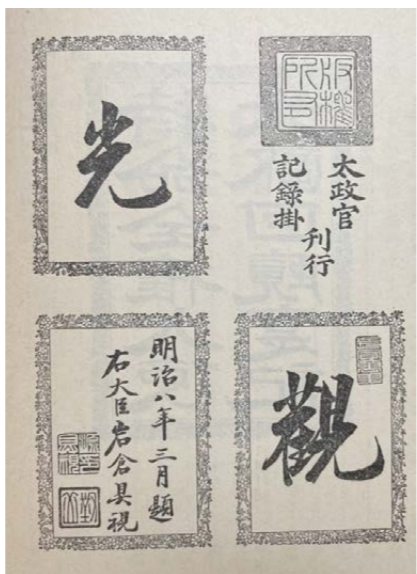 版權
所有
太政官
記錄掛
刊行
觀
光
明治八年三月題
右大臣岩倉具視